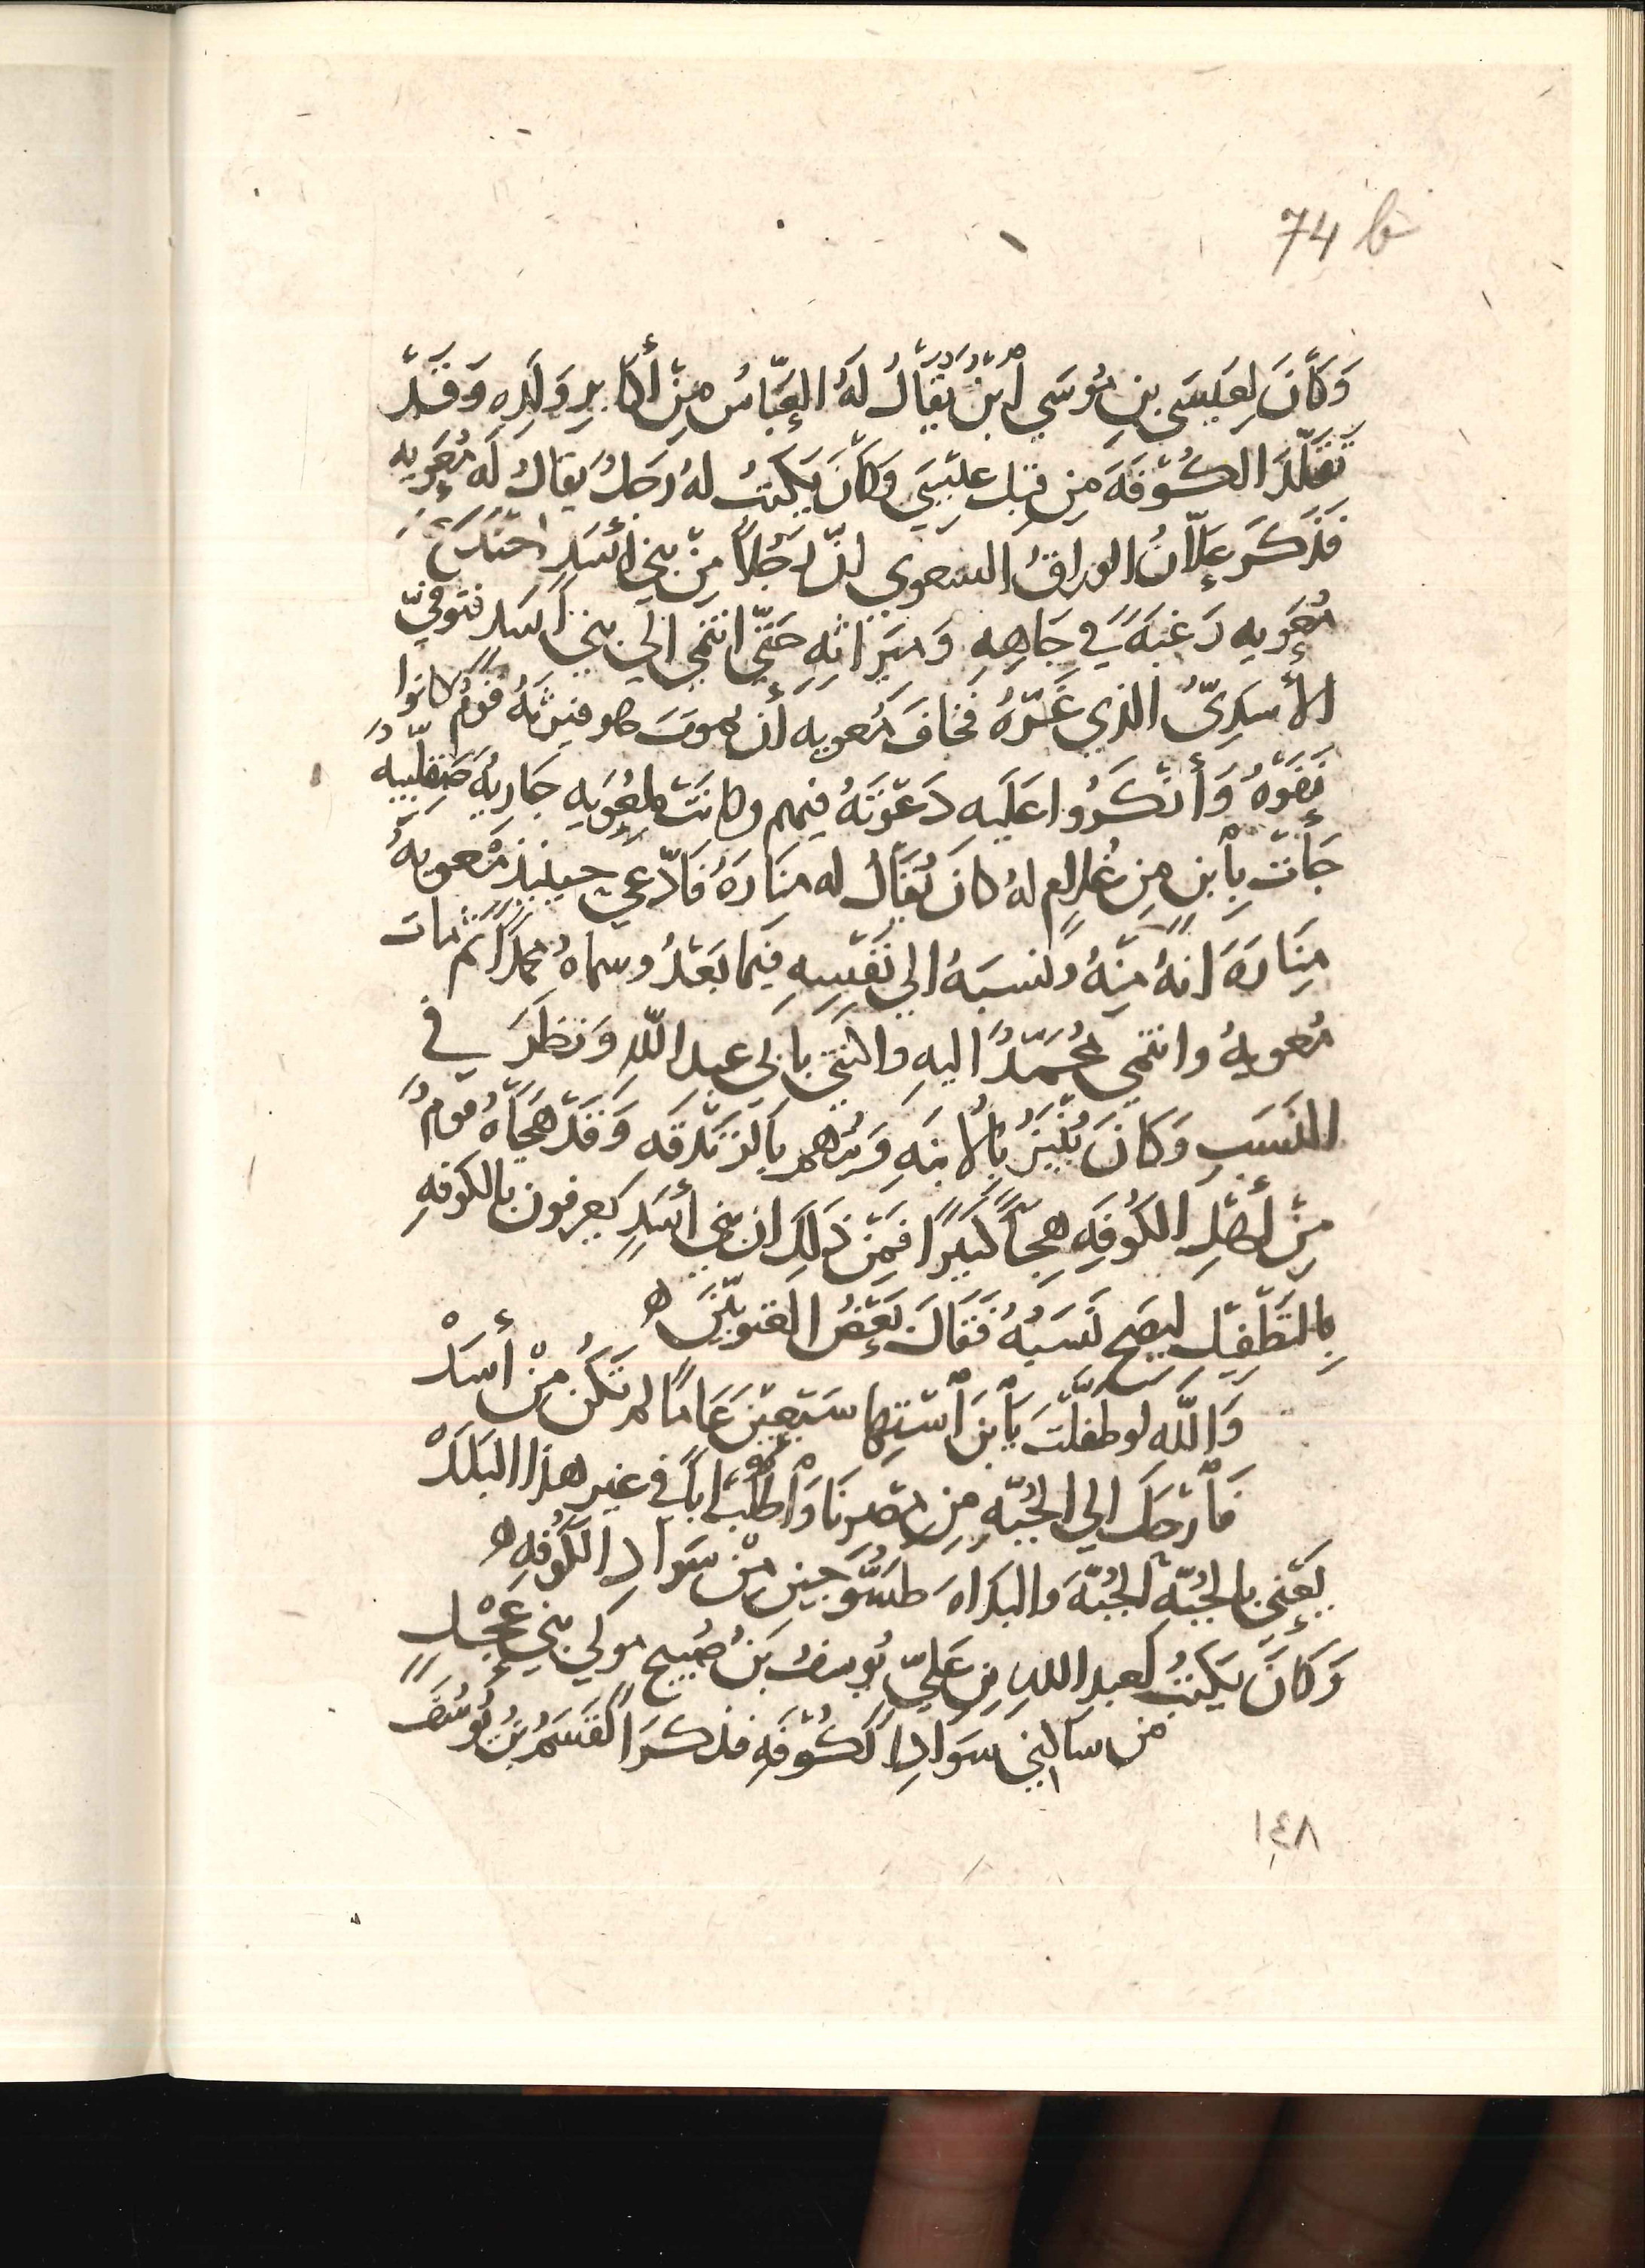 74 b
وَكَانَ لِعِيسَى بنِ مُوسَي ابْنٌ يُقَالُ لَهُ العَبَّاسُ مِنْ أكَابِرِ وَلَدِهِ وَقَدْ
تَقَلَّدَ الكُوفَةَ مِن قِبَلِ عِيسَي وَكَانَ يَكتبُ لهُ رَجُلٌ يقالُ لَه مُعَوِيه
فَذَكَرَ عِلَّانُ الوراقُ السعوبي انّ رَجُلاً مِنْ بني أسَدٍ
مُعَوِيه رَغبَةً في جَاهِهِ وَمِيَراثِهِ حَتَّي انتمي الي بني أسَد فتوفيّ
الأسَدِيّ الذي غَرّهُ فَخَافَ مُعويه أن يموتَ هو فيرثَهُ قومٌ كانوا
نَفَوْهُ وَأنْكَرُوا عَلَيهِ دَعْوَتَهُ فيهم وكانَتْ لمُعَوِيَه جَاريَة صَقلّبيه
جَأتْ بِأبنٍ مِن غُلامٍ لهُ كانَ يُقالُ له مَنَارَةُ فَادّعي حينئِذ مُعويةُ
مِنَارَةَ انهُ مِنهُ ونسبَهُ الي نَفْسِهِ فيمَا بَعْدُ وسماهُ محمداً ثم مات
مُعويهُ وانتمي مُحَمّدٌ اليهِ واكتني بابي عبدِ اللّهِ وَنظَرَ في
النسَبِ وَكانَ يُنْبَزُ بِالابنَهِ وَيُرْمي بِالزندَقَه وَقَدْ هَجَاهُ قومٌ
مِنْ أهْلِ الكُوفَهِ هِجَاً كَبيرًا فَمِنْ ذَلِكَ ان بني أسَدٍ يعرفون بالكوفهِ
بِالتَّطْفِيلِ ليَصِحَ نَسَبُهُ فَقَالَ بَعْضُ
وَاللّهِ لو طفلْتَ يَا بنَ اسْتِها سَبْعِيْنَ عَامًا لم تَكُنْ مِنْ أسَدْ
فَارْحَل الي الجُبَّهِ مِن مِصْرِنَا وَاطلُبْ أباً في غير هذا البَلَدْ
يَعْني بالجُبَّهِ الجُبّةَ والبداهَ طسُّوجين مِنْ سَوَادِ الكُوفِهِ ه
وَكانَ يَكتبُ لعبدِ اللهِ بنِ عَليّ يُوسفُ بنُ صُبيح مولي بني عِجْلٍ
من ساكني سَوَادِ الكُوفَهِ فذكرَ القَسَمُ بنُ يُوسُفَ
١٤٨